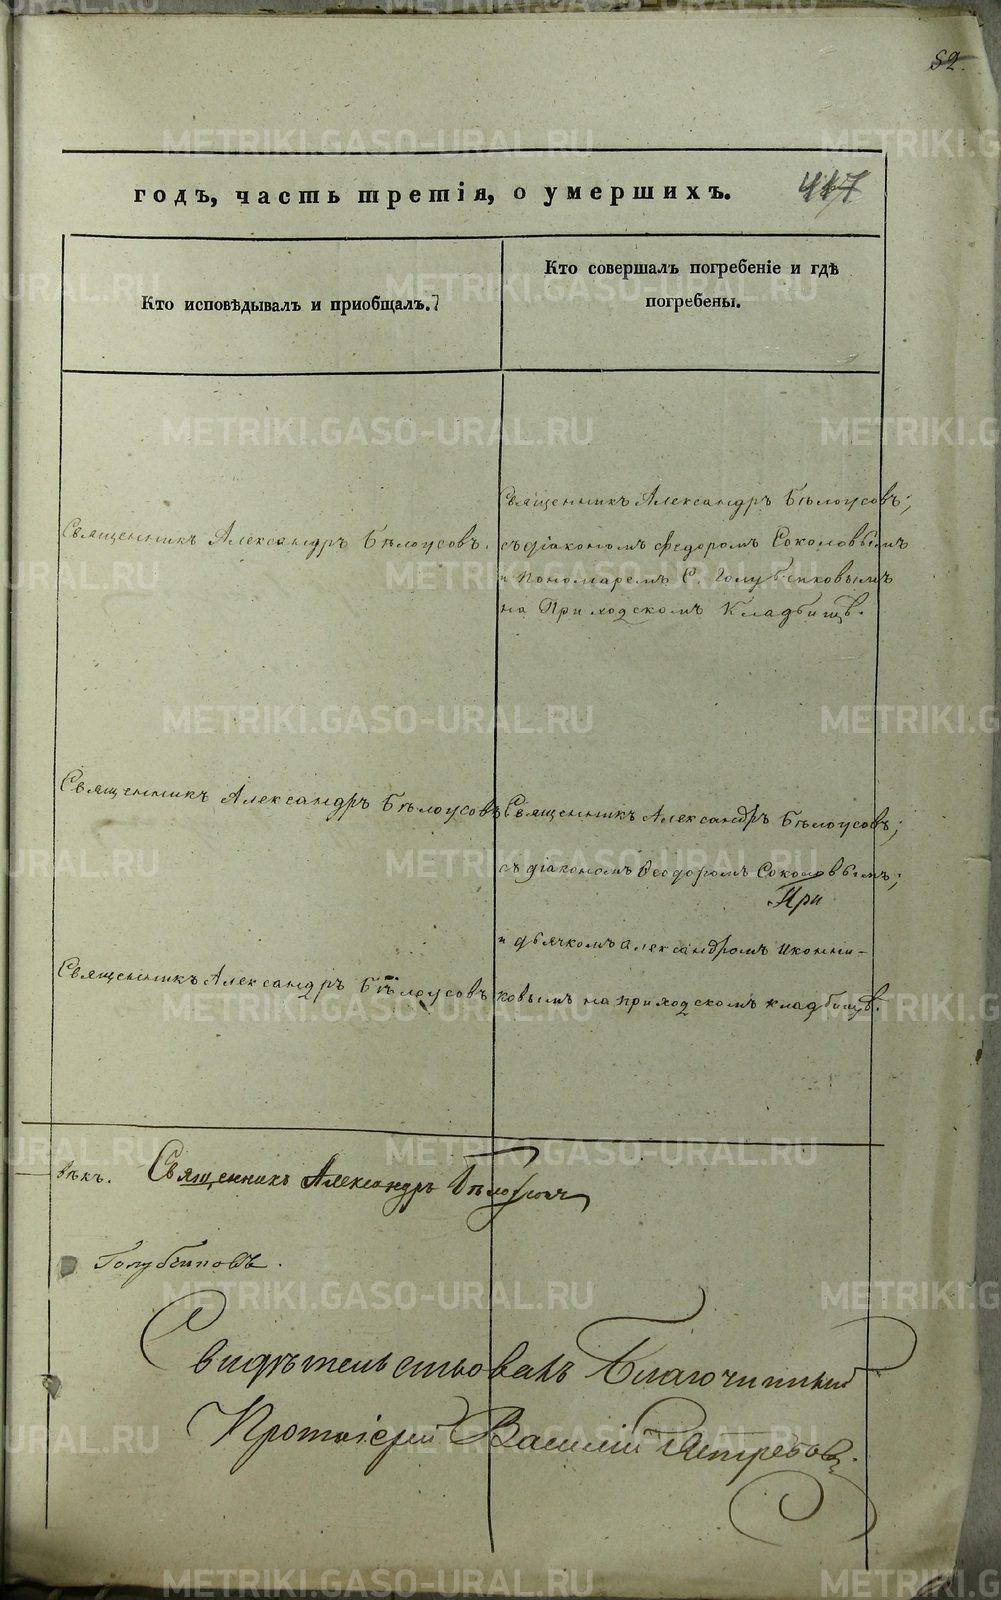 52.
годъ, часть третія, о умершихъ.
447
Кто исповѣдывалъ и приобщалъ.
Кто совершалъ погребеніе и гдѣ
погребены.
Священникъ Александръ Бѣлоусовъ.
Священникъ Александръ Бѣлоусовъ;
съ діакономъ Федоромъ Соколовымъ
и пономаремъ С. Голубчиковымъ
на Приходскомъ Кладбищѣ.
Священникъ Александръ Бѣлоусовъ
Священникъ Александръ Бѣлоусовъ;
съ діакономъ Ѳеодоромъ Соколовымъ;
При
и дьячкомъ Александромъ Иконни-
Священникъ Александръ Бѣлоусовъ
ковымъ на приходскомъ кладбищѣ.
вѣкъ. Священникъ Александръ Бѣлоусовъ
Голубчиковъ.
Свидѣтельствовалъ Благочинный
Протоіерей Василій Ястребовъ.
METRIKI.GASO-URAL.RU